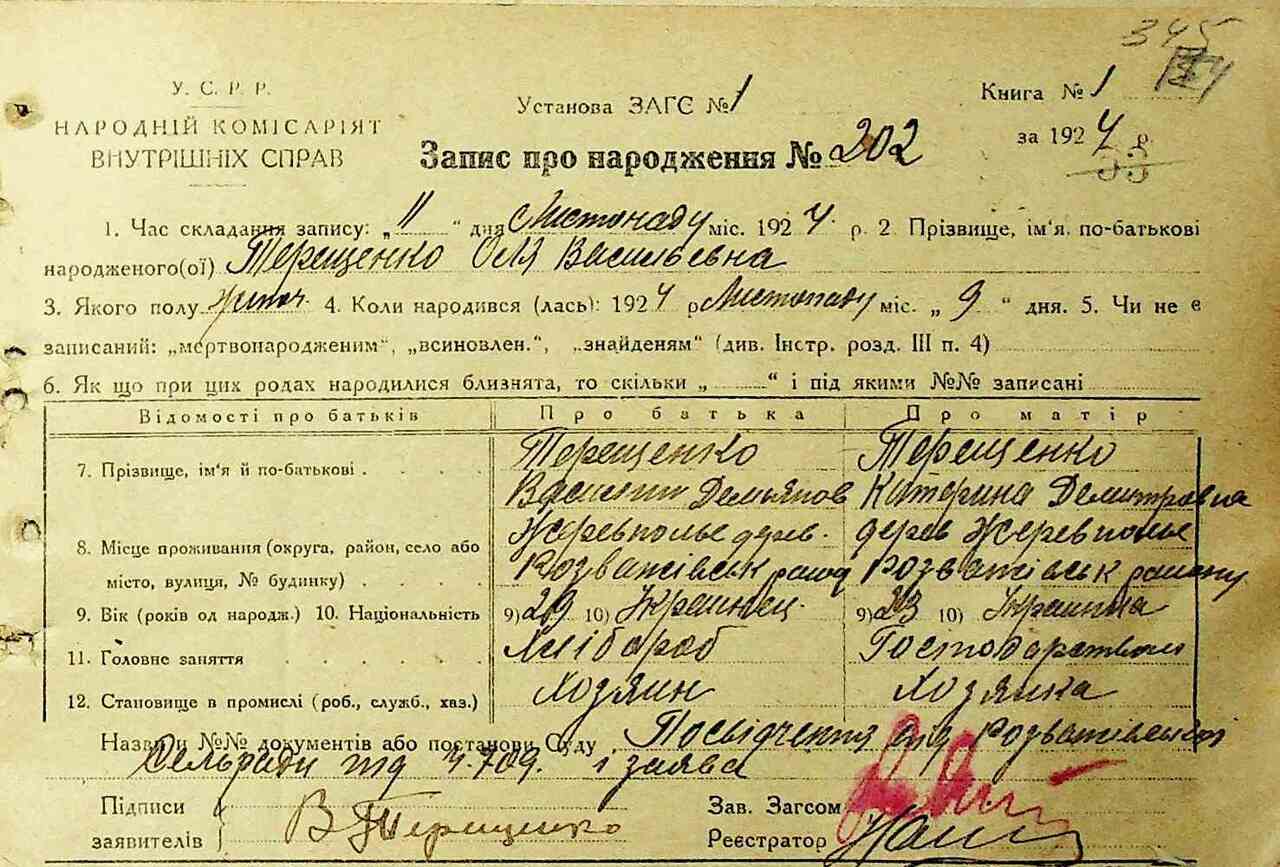 345
У. С. Р. Р.
НАРОДНІЙ КОМІСАРІЯТ
ВНУТРІШНІХ СПРАВ
Установа ЗАГС № 1
Запис про народження № 202
Книга № 1
за 1924 р.
33
1. Час складання запису: „ 11 “ дня Листопаду міс. 1924 р. 2 Прізвище, ім'я, по-батькові
народженого(ої) Терещенко Оля Васильевна
3. Якого полу жіноч. 4. Коли народився (лась): 1924 р Листопаду міс. „ 9 “ дня. 5. Чи не є
записаний: „мертвонародженим“, „всиновлен.“, „знайденям“ (див. Інстр. розд. III п. 4)
6. Як що при цих родах народилися близнята, то скільки „ “ і під якими №№ записані
Відомості про батьків Про батька Про матір
7. Прізвище, ім'я й по-батькові . . . . Терещенко Терещенко
Василий Демьянов Катерина Демитровна
8. Місце проживання (округа, район, село або Жеревполье дерев. дерев Жеревполье
місто, вулиця, № будинку) . . . . Розважівськ район Розважівськ району
9. Вік (років од народж.) 10. Національність 9) 29 10) Украинец. 9) 23 10) Украинка
11. Головне заняття . . . . . Хлібороб Господарством
12. Становище в промислі (роб., служб., хаз.) Хозяин Хозяика
Назви й №№ документів або постанови Суду Посвідчення від Розважівської
Сельради під ч. 709. і заява
Підписи
заявителів
В Терещенко
Зав. Загсом
Реєстратор